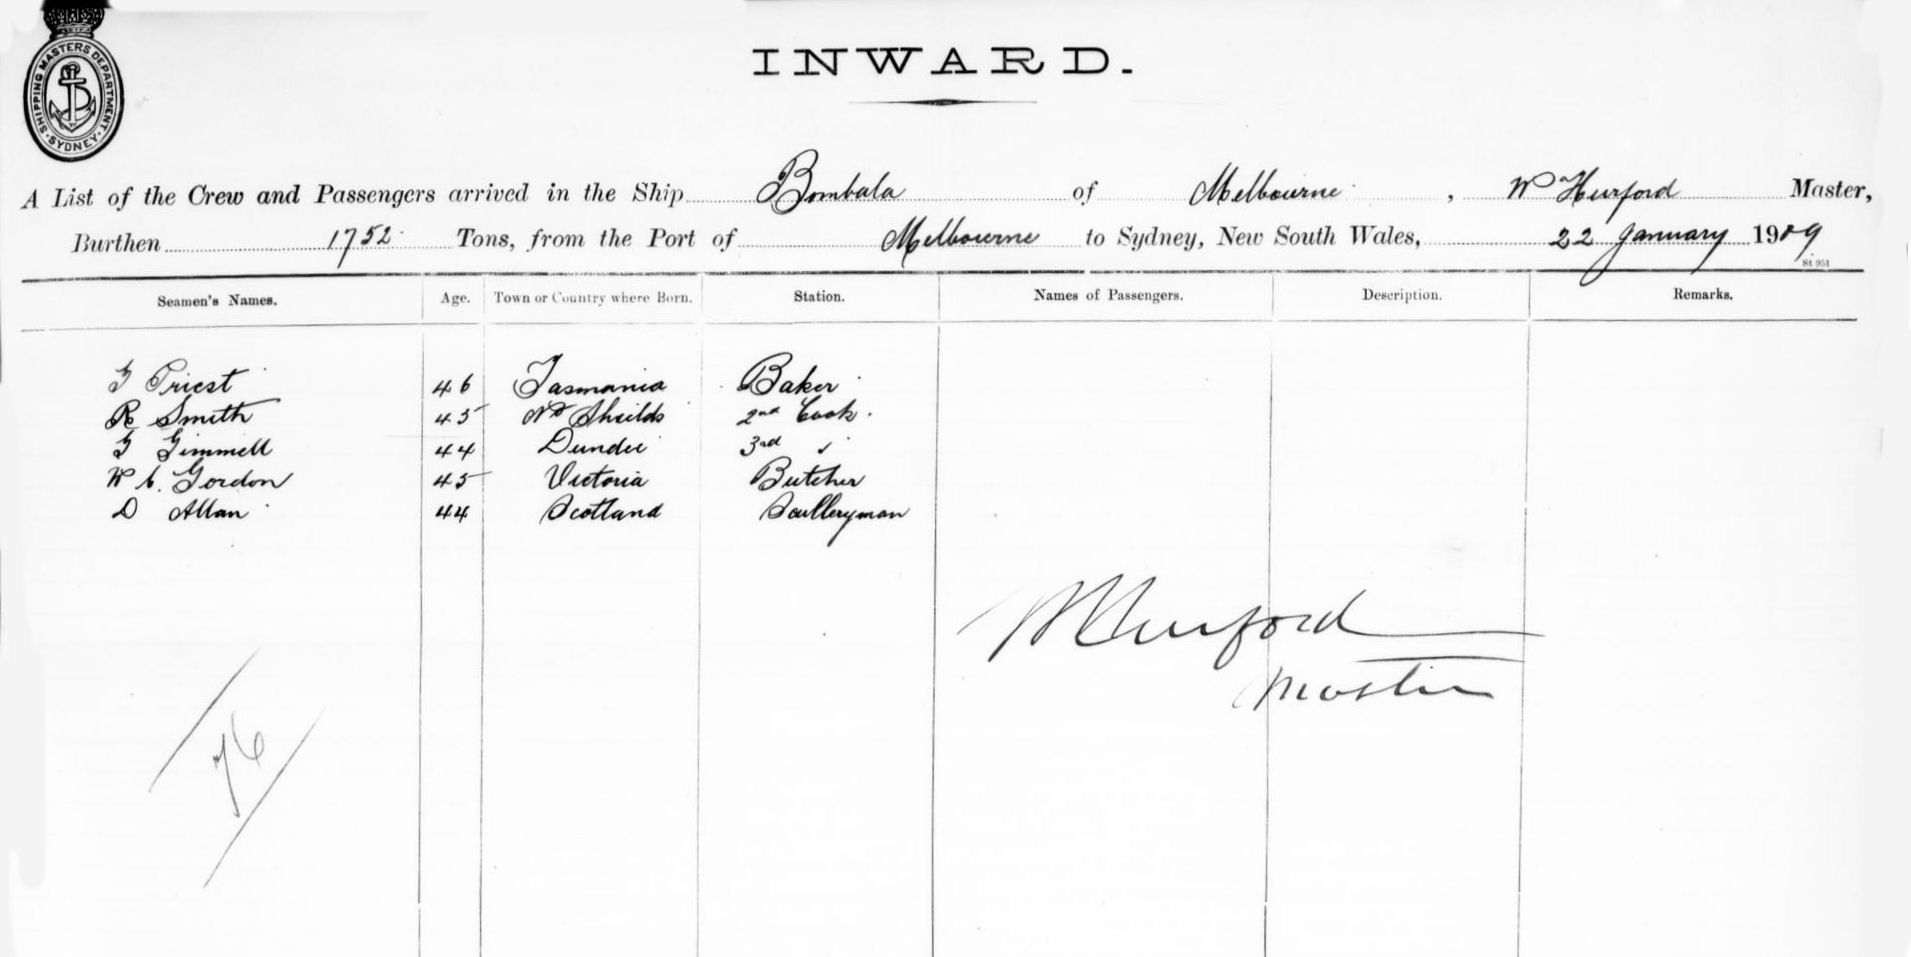 SHIPPING MASTERS DEPARTMENT. SYDNEY
INWARD.
A List of the Crew and Passengers arrived in the Ship Bombala of Melbourne, Wm Hurford Master,
Burthen 1752 Tons, from the Port of Melbourne to Sydney, New South Wales, 22 January 1909
St 951
Seamen's Names. Age. Town or Country where Born. Station. Names of Passengers. Description. Remarks.
G Priest 46 Tasmania Baker
R Smith 45 Nth Sheilds 2nd Cook.
G Gimmell 44 Dundee 3rd "
W C. Gordon 45 Victoria Butcher
D Allan 44 Scotland Sculleryman
W Hurford
Master
76